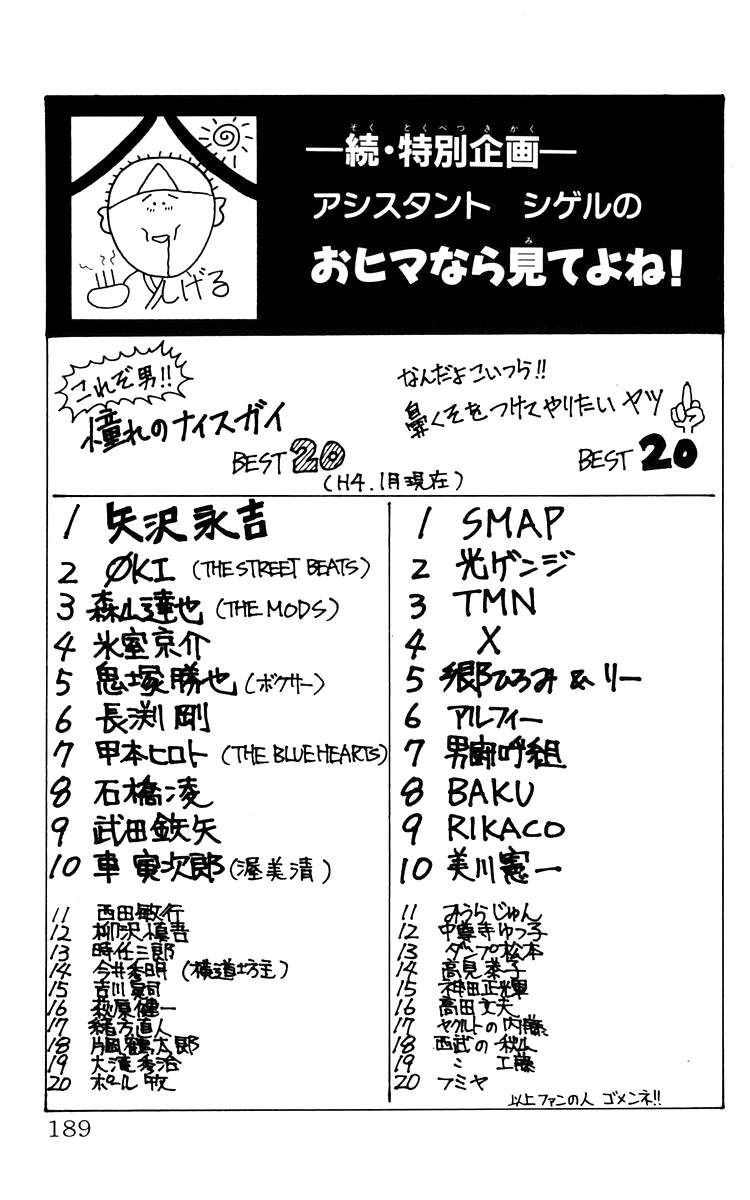 続・特別企画
ぞく とくべつきかく
アシスタント シゲルの
おヒマなら見てよね!
み
しげる
これぞ男!!
憧れのナイスガイ
BEST 20
なんだよこいつら!!
鼻くそをつけてやりたいヤツ
BEST 20
(H4.1月現在)
1 矢沢永吉
2 ØKI (THE STREET BEATS)
3 森山達也 (THE MODS)
4 氷室京介
5 鬼塚勝也 (ボクサー)
6 長渕剛
7 甲本ヒロト (THE BLUE HEARTS)
8 石橋凌
9 武田鉄矢
10 車寅次郎 (渥美清)
11 西田敏行
12 柳沢慎吾
13 時任三郎
14 今井秀明 (横道坊主)
15 吉川晃司
16 萩原健一
17 緒方直人
18 片岡鶴太郎
19 大滝秀治
20 ポール牧
1 SMAP
2 光ゲンジ
3 TMN
4 X
5 郷ひろみ & リー
6 アルフィー
7 男闘呼組
8 BAKU
9 RIKACO
10 美川憲一
11 みうらじゅん
12 中尊寺ゆつ子
13 ダンプ松本
14 高見恭子
15 神田正輝
16 高田文夫
17 ヤクルトの内藤
18 西武の秋山
19 〃 工藤
20 フミヤ
以上ファンの人 ゴメンネ!!
189